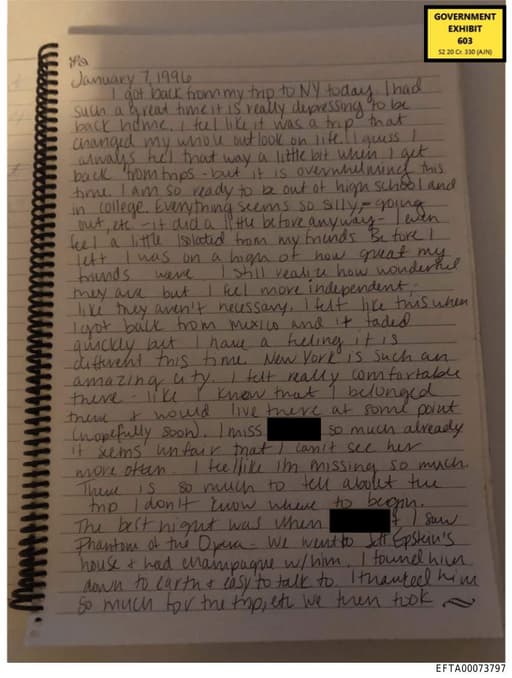 GOVERNMENT
EXHIBIT
603
S2 20 Cr. 330 (AJN)
January 7, 1996
I got back from my trip to NY today. I had
such a great time it is really depressing to be
back home. I feel like it was a trip that
changed my whole outlook on life. I guess I
always feel that way a little bit when I get
back from trips - but it is overwhelming this
time. I am so ready to be out of high school and
in college. Everything seems so silly, - going
out, etc - it did a little before anyway - I even
feel a little isolated from my friends. Before I
left I was on a high of how great my
friends were. I still realize how wonderful
they are but I feel more independent -
like they aren't necessary. I felt like this when
I got back from Mexico and it faded
quickly but I have a feeling it is
different this time. New York is such an
amazing city. I felt really comfortable
there - like I know that I belonged
there & would live there at some point
(hopefully soon). I miss so much already
it seems unfair that I can't see her
more often. I feel like I'm missing so much.
There is so much to tell about the
trip I don't know where to begin.
The best night was when & I saw
Phantom of the Opera - We went to Jeff Epstein's
house & had champagne w/ him. I found him
down to earth & easy to talk to. I thanked him
so much for the trip, etc. We then took
EFTA00073797